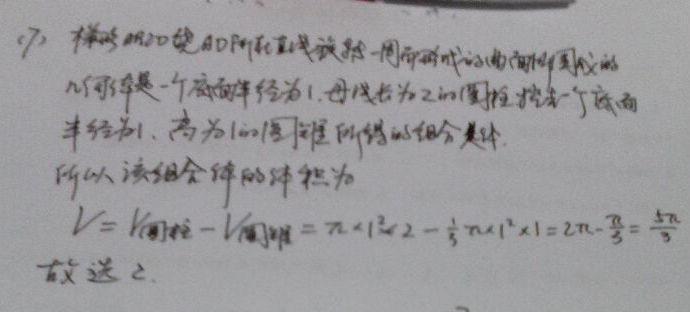 (7) 梯形ABCD绕AD所在直线旋转一周而形成的曲面所围成的
几何体是一个底面半径为1,母线长为2的圆柱挖去一个底面
半径为1、高为1的圆锥所得的组合体.
所以该组合体的体积为
V=V圆柱-V圆锥=π×1²×2-1/3π×1²×1=2π-π/3=5π/3
故选C.